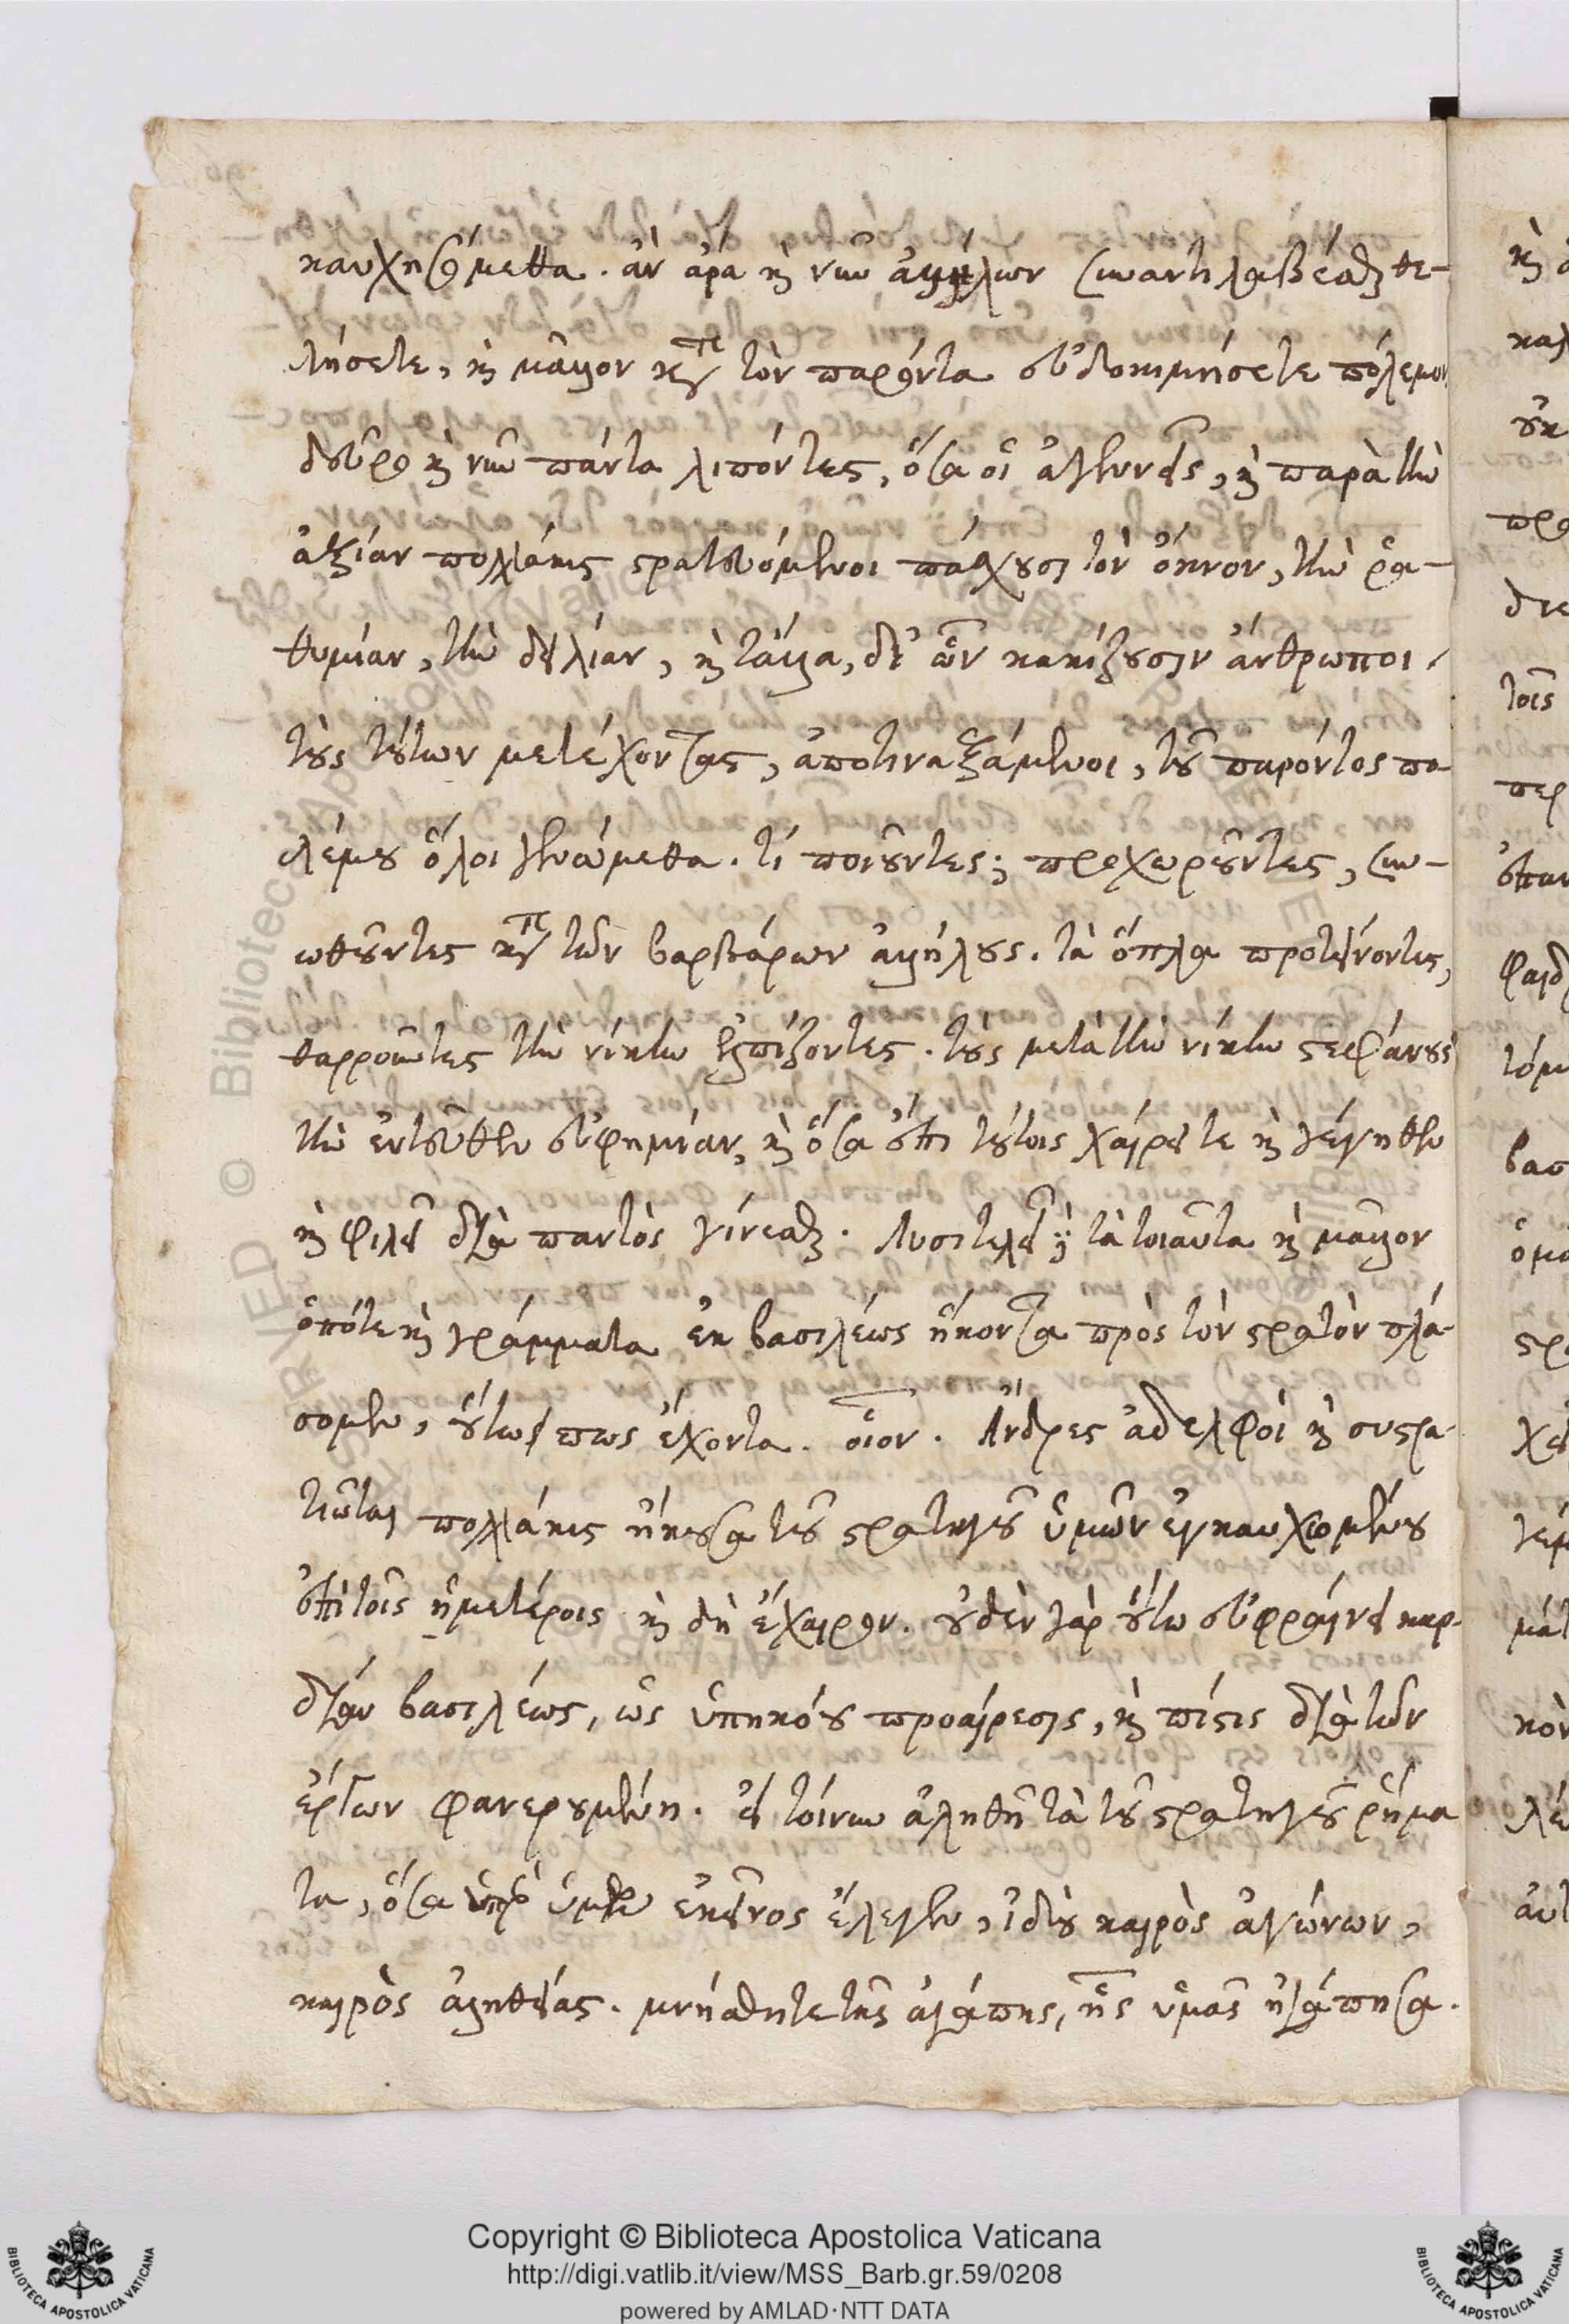 καυχησόμεθα. ἀν ἄρα κὶ νῦν ἀλλήλων συναντιλαβέσθαι θε-
λήσετε, κὶ μᾶλλον κατὰ τὸν παρόντα εὐδοκιμήσετε πόλεμον
δεῦρο κὶ νῦν πάντα λιπόντες, ὅσα οἱ ἀγενεῖς, κὶ παρὰ τὴν
ἀξίαν πολλάκις στρατευόμενοι πάσχουσι τὸν ὄκνον, τὴν ῥα-
θυμίαν, τὴν δειλίαν, κὶ τἄλλα, δι' ὧν κακίζουσιν ἄνθρωποι
τοὺς τούτων μετέχοντας, ἀποτιναξάμενοι, τοῦ παρόντος πο-
λέμου ὅλοι γενώμεθα. τί ποιοῦντες; προχωροῦντες, συν-
ωθοῦντες κατὰ τῶν βαρβάρων ἀλλήλους. τὰ ὅπλα προτείνοντες,
θαρροῦντες τὴν νίκην ἐλπίζοντες. τοὺς μετὰ τὴν νίκην στεφάνους
τὴν ἐντεῦθεν εὐφημίαν, κὶ ὅσα ἐπὶ τούτοις χαίρειν τε κὶ γέγηθεν
κὶ φιλεῖ διὰ παντὸς γίνεσθαι. Λυσιτελεῖ γὰρ τὰ τοιαῦτα κὶ μᾶλλον
ὁπότε κὶ γράμματα ἐκ βασιλέως ἥκοντα πρὸς τὸν στρατὸν πλά-
σομεν, οὕτωσί πως ἔχοντα. οἷον. Ἄνδρες ἀδελφοὶ κὶ συστρα-
τιῶται πολλάκις ἤκουσα τοῦ στρατηγοῦ ὑμῶν ἐγκαυχωμένου
ἐπὶ τοῖς ἡμετέροις κὶ δὴ ἔχαιρον. οὐδὲν γὰρ οὕτω εὐφραίνει καρ-
δίαν βασιλέως, ὡς ὑπηκόου προαίρεσις, κὶ πίστις διὰ τῶν
ἔργων φανερουμένη. εἰ τοίνυν ἀληθῆ τὰ τοῦ στρατηγοῦ ῥήμα
τα, ὅσα ὑπὲρ ὑμῶν ἐκεῖνος ἔλεγεν, ἰδοὺ καιρὸς ἀγώνων,
καιρὸς ἀληθείας. μνήσθητε τῆς ἀγάπης, ἧς ὑμᾶς ἠγάπησα.
Copyright © Biblioteca Apostolica Vaticana
http://digi.vatlib.it/view/MSS_Barb.gr.59/0208
powered by AMLAD·NTT DATA